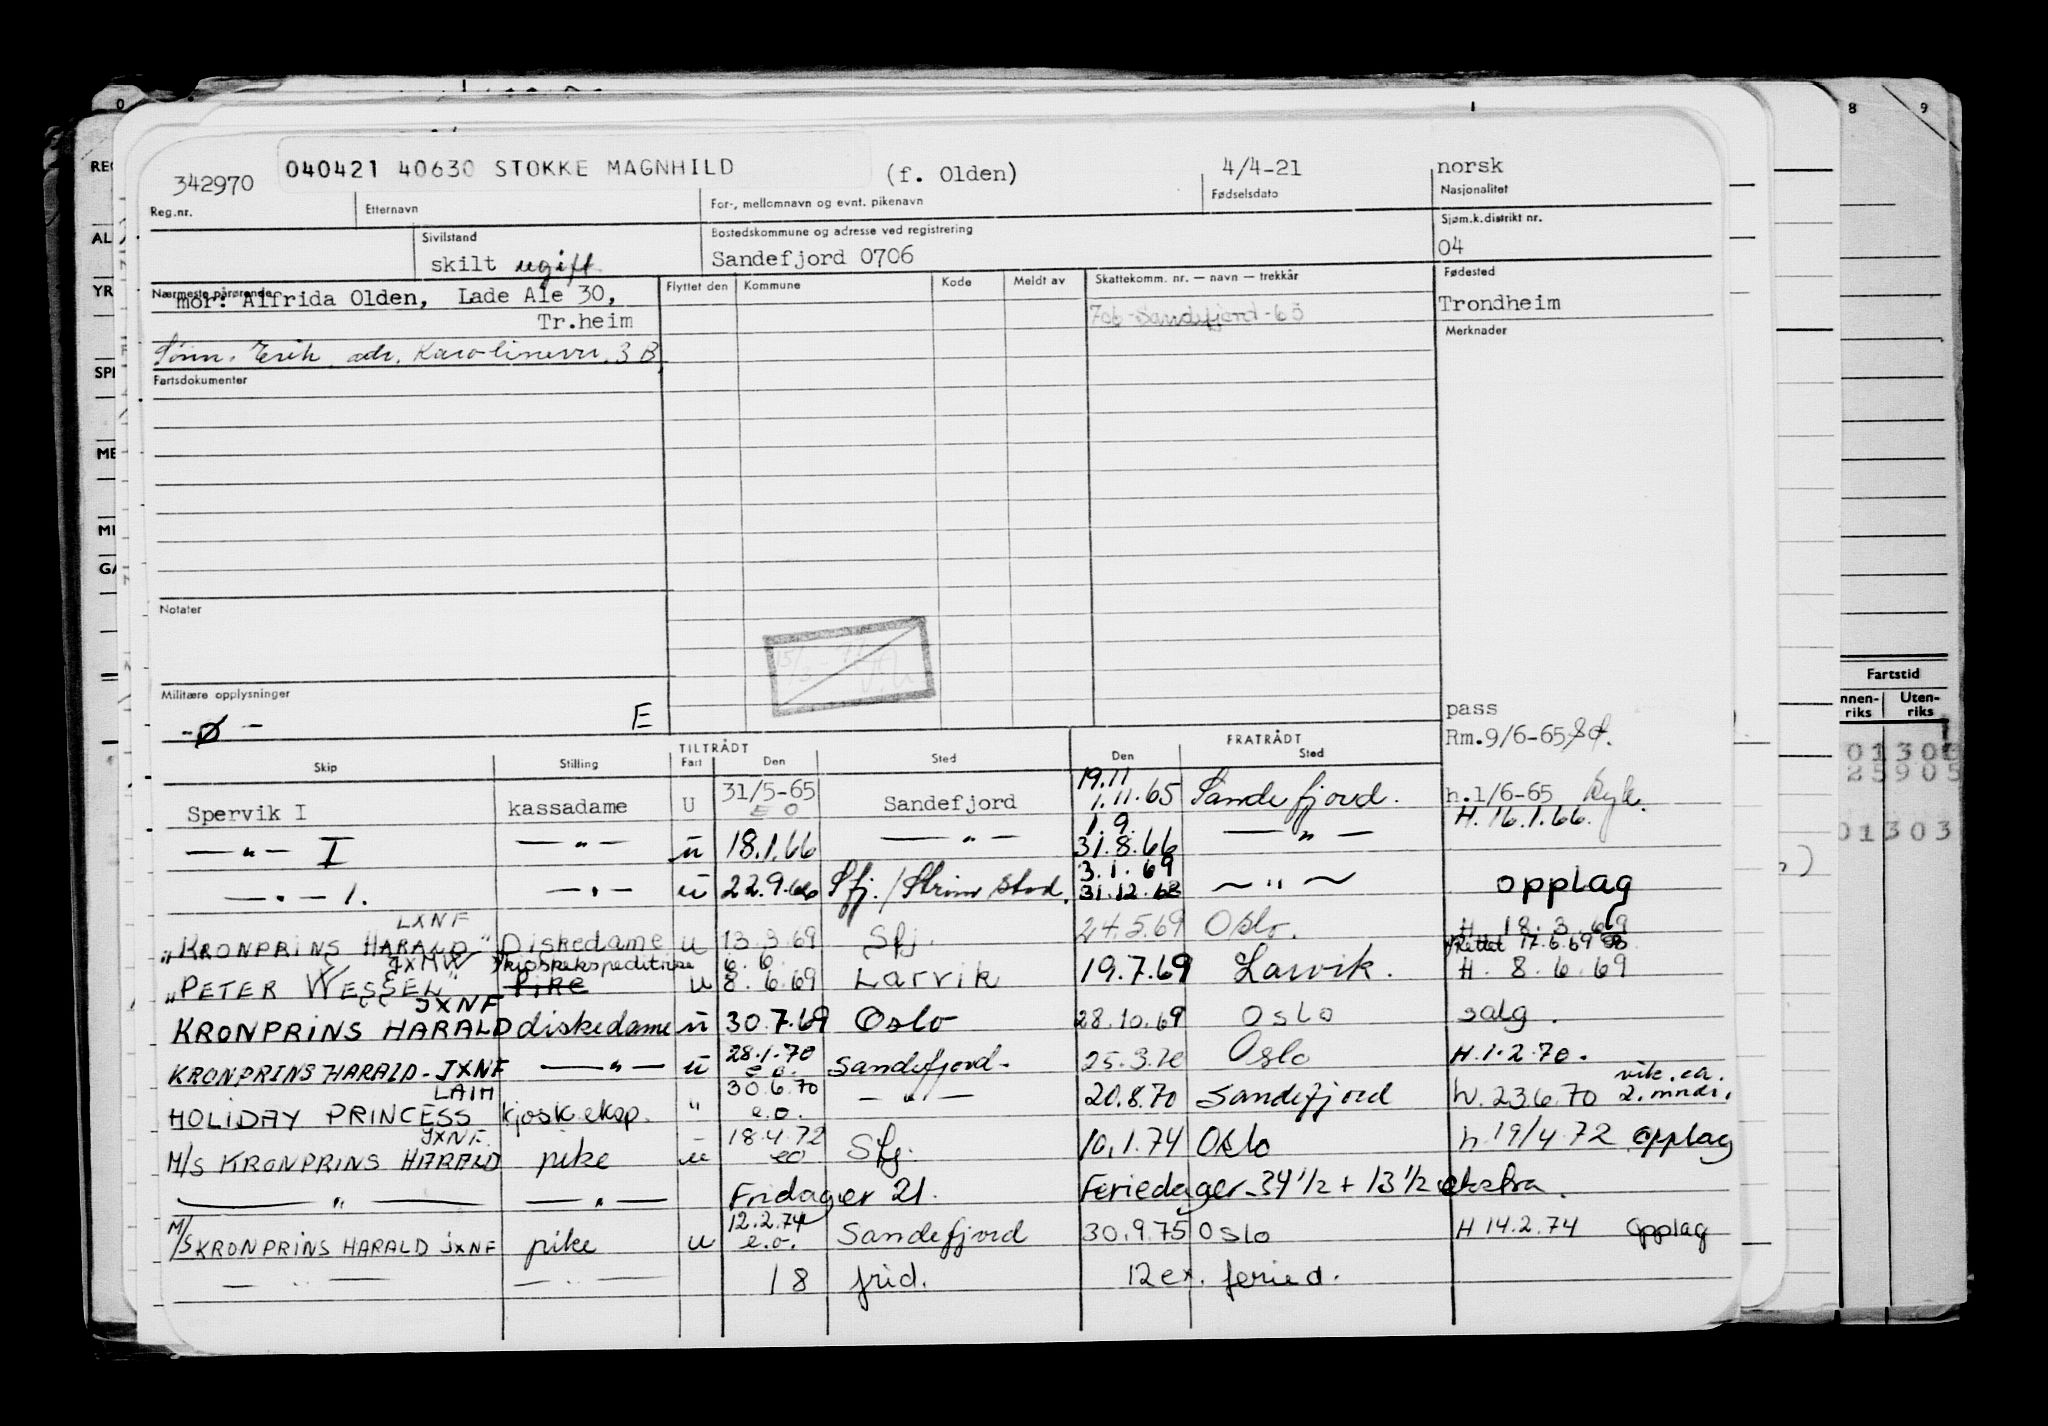 342970 040421 40630 STOKKE MAGNHILD (f. Olden) 4/4-21 norsk
Reg.nr. Etternavn For-, mellomnavn og evnt. pikenavn Fødselsdato Nasjonalitet
Sivilstand Bostedskommune og adresse ved registrering Sjøm.k.distrikt nr.
skilt ugift Sandefjord 0706 04
Nærmeste pårørende Flyttet den Kommune Kode Meldt av Skattekomm. nr. — navn — trekkår Fødested
mor: Alfrida Olden, Lade Ale 30, 706-Sandefjord-65 Trondheim
Tr.heim Merknader
Sønn. Erik adr. Karolinevn. 3 B
Fartsdokumenter
Notater
Militære opplysninger
-Ø- E
pass
Rm.9/6-65
TILTRÅDT FRATRÅDT
Skip Stilling Fart Den Sted Den Sted
Spervik I kassadame U 31/5-65 EO Sandefjord 19.11 1.11.65 Sandefjord. h.1/6-65
H. 16.1.66.
— " — I — " — u 18.1.66 — " — 1.9. 31.8.66 — " —
— " — 1. — " — u 22.9.66 Sfj./ 3.1.69 31.12.68 ~ " ~ opplag
"KRONPRINS HARALD" LXNF Diskedame u 13.3.69 Sfj. 24.5.69 Oslo. H 18.3.69
Rettet 17.6.69
"PETER WESSEL" JXMW kioskekspeditrise pike u 6.6. 8.6.69 Larvik 19.7.69 Larvik. H. 8.6.69
KRONPRINS HARALD JXNF diskedame u 30.7.69 Oslo 28.10.69 Oslo salg.
KRONPRINS HARALD - JXNF — " — u 28.1.70 e.o. Sandefjord. 25.3.70 Oslo H.1.2.70.
HOLIDAY PRINCESS LAIH kjosk.eksp. " 30.6.70 e.o. — " — 20.8.70 Sandefjord h. 23.6.70 vik. ca. 2. mndr.
M/S KRONPRINS HARALD JXNF. pike u 18.4.72 eo Sfj. 10.1.74 Oslo h 19/4 72 opplag
— " — — " — Fridager 21. Feriedager - 34 1/2 + 13 1/2 ekstra.
M/S KRONPRINS HARALD JXNF pike u 12.2.74 e.o. Sandefjord 30.9.75 Oslo H 14.2.74 opplag
— " — — " — 18 frid. 12 ex. feried.
8 9
Fartstid
Uten-
riks riks